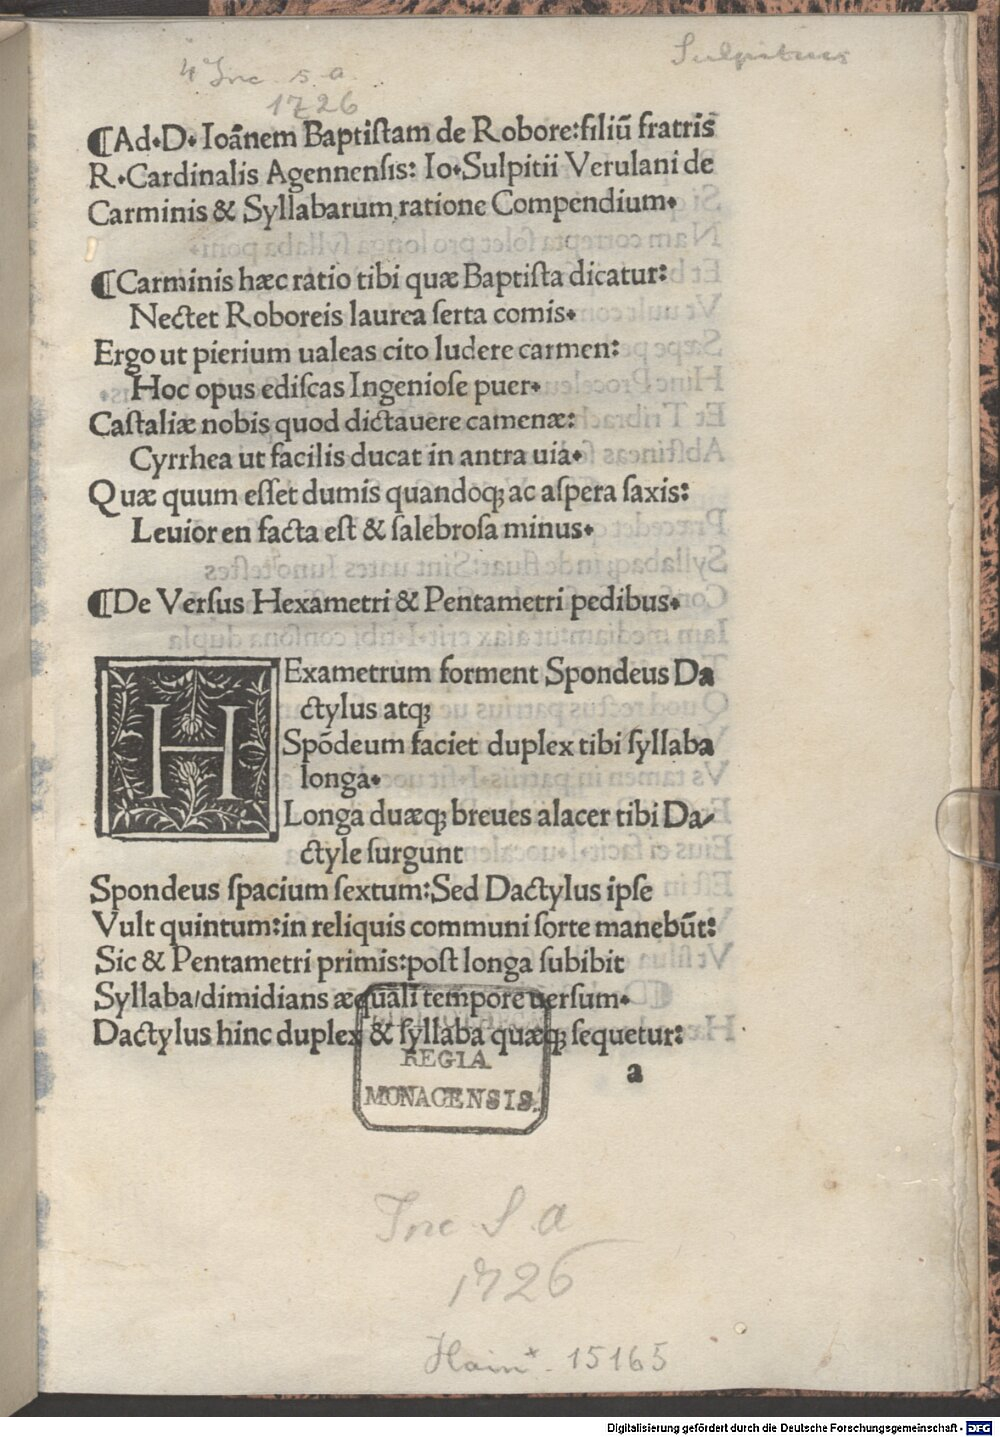 4° Inc. s. a.
1726
Sulpitius
¶Ad.D. Ioānem Baptiſtam de Robore:filiū fratris
R.Cardinalis Agennenſis: Io.Sulpitii Verulani de
Carminis & Syllabarum ratione Compendium.
¶Carminis hæc ratio tibi quæ Baptiſta dicatur:
Nectet Roboreis laurea ſerta comis.
Ergo ut pierium ualeas cito ludere carmen:
Hoc opus ediſcas Ingenioſe puer.
Caſtaliæ nobis quod dictauere camenæ:
Cyrrhea ut facilis ducat in antra uia.
Quæ quum eſſet dumis quandoq; ac aſpera ſaxis:
Leuior en facta eſt & ſalebroſa minus.
¶De Verſus Hexametri & Pentametri pedibus.
HExametrum forment Spondeus Da
ctylus atq;
Spōdeum faciet duplex tibi ſyllaba
longa.
Longa duæq; breues alacer tibi Da/
ctyle ſurgunt
Spondeus ſpacium ſextum:Sed Dactylus ipſe
Vult quintum:in reliquis communi ſorte manebūt:
Sic & Pentametri primis:poſt longa ſubibit
Syllaba/dimidians æquali tempore uerſum.
Dactylus hinc duplex & ſyllaba quæq; ſequetur:
a
REGIA
MONACENSIS.
Inc. S. a.
1726
Hain* 15165
Digitalisierung gefördert durch die Deutsche Forschungsgemeinschaft - DFG